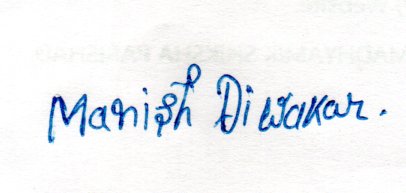 Manish Diwakar.